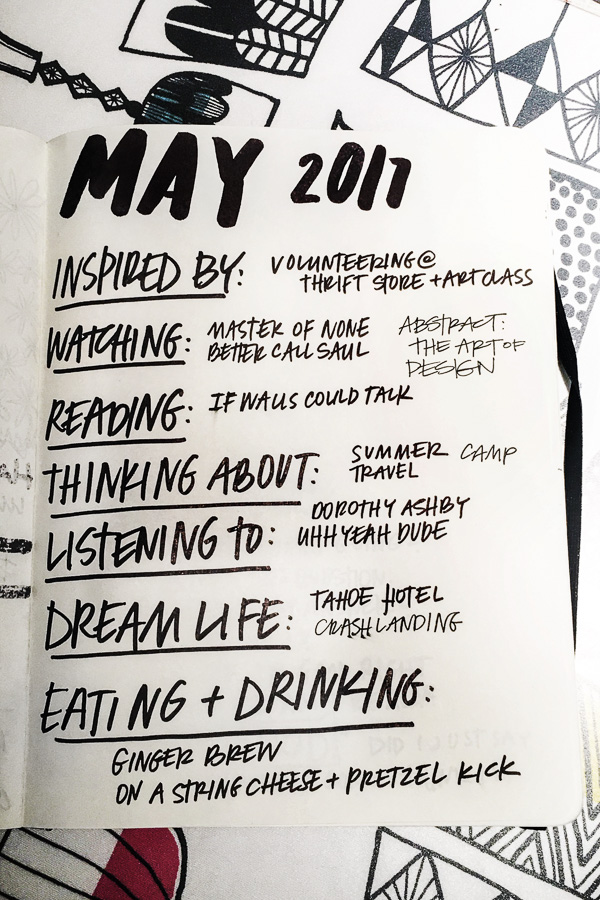 MAY 2017
INSPIRED BY: VOLUNTEERING @
THRIFT STORE + ART CLASS
WATCHING: MASTER OF NONE
BETTER CALL SAUL
ABSTRACT:
THE ART OF
DESIGN
READING: IF WALLS COULD TALK
THINKING ABOUT: SUMMER CAMP
TRAVEL
LISTENING TO: DOROTHY ASHBY
UHH YEAH DUDE
DREAM LIFE: TAHOE HOTEL
CRASH LANDING
EATING + DRINKING:
GINGER BREW
ON A STRING CHEESE + PRETZEL KICK